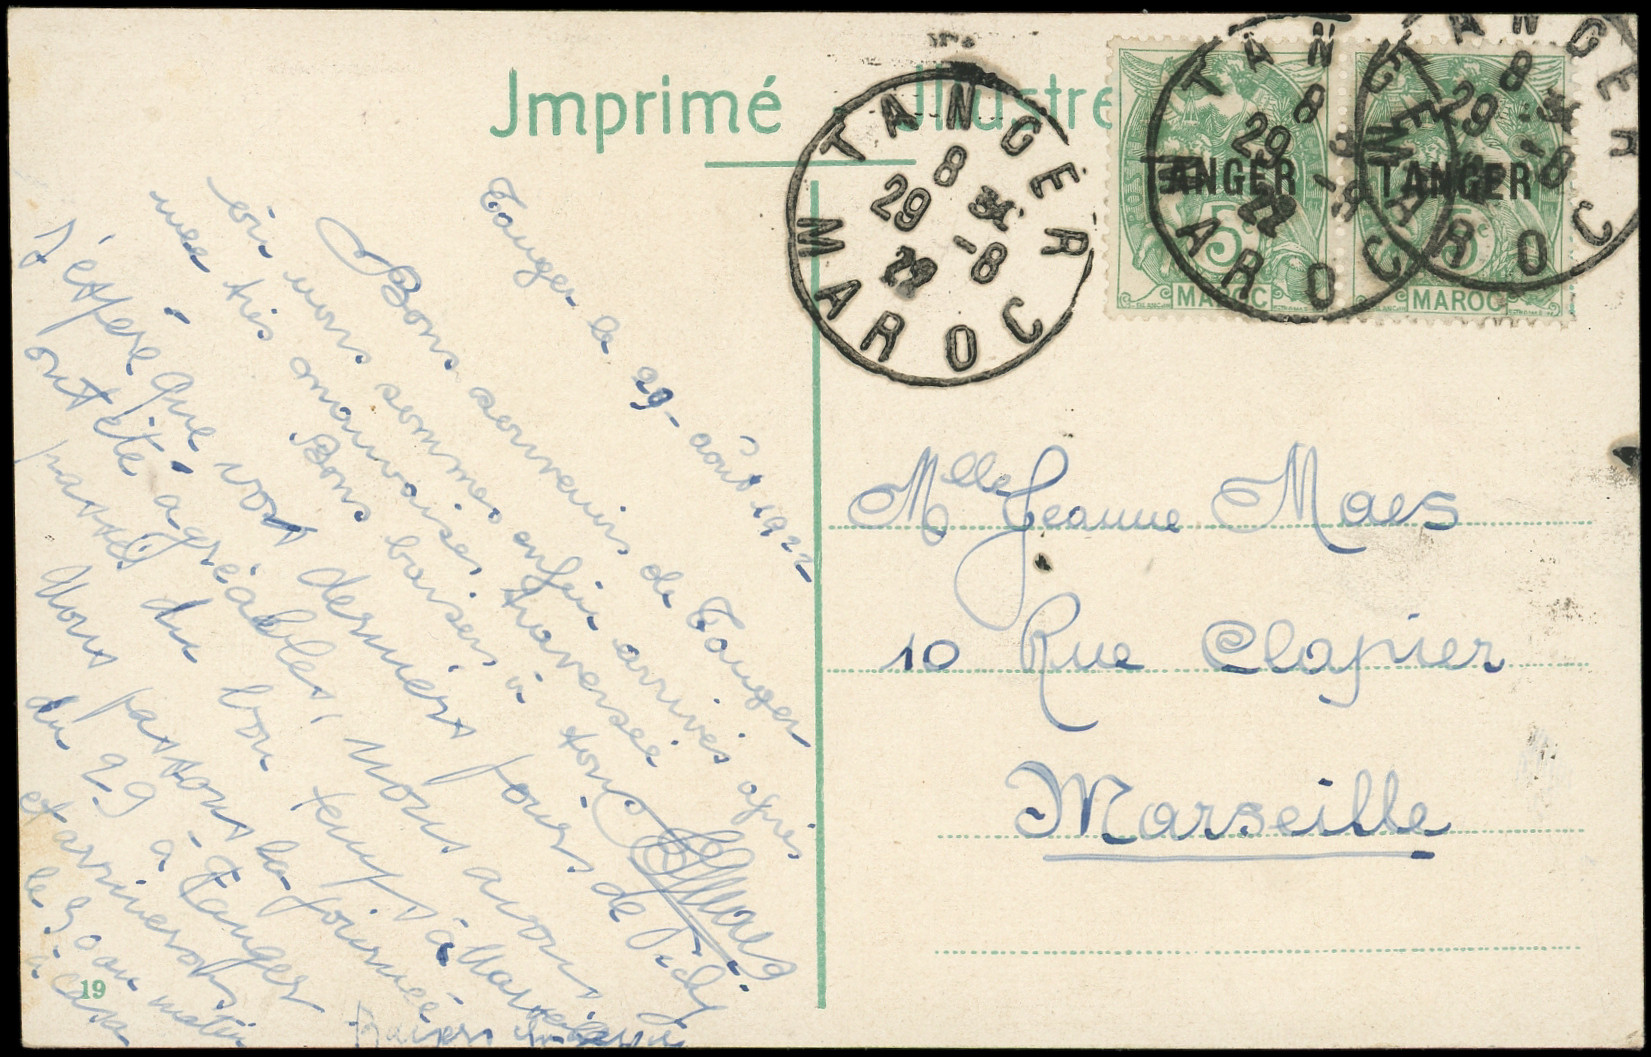 Imprimé Illustré
TANGER
8
29 -8
22
MAROC
TANGER
8
29 -8
22
MAROC
TANGER
8
29 -8
MAROC
TANGER
5
MAROC
TANGER
5c
MAROC
Tanger le 29 - août 1922
Bons souvenirs de Tanger
où nous sommes enfin arrivés après
une très mauvaise traversée
Bons baisers à tous
Maes
J'espère que vos derniers jours de
ont été agréables, nous avons
passé du bon temps à Marseille
Nous passons la journée
du 29 à Tanger
et arriverons
le 30 au matin
à Casa
Baisers
19
Mlle Jeanne Maes
10 Rue Clapier
Marseille